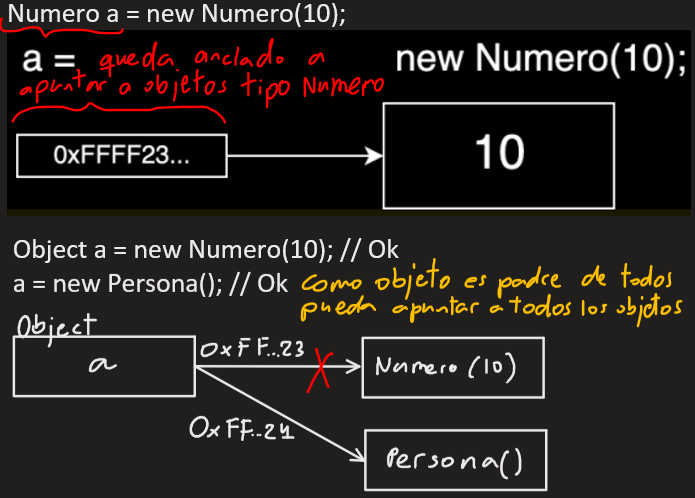 Numero a = new Numero(10);
a = queda anclado a new Numero(10);
apuntar a objetos tipo Numero
0xFFFF23... 10
Object a = new Numero(10); // Ok
a = new Persona(); // Ok como objeto es padre de todos
pueda apuntar a todos los objetos
Object
a 0xFF..23 Numero (10)
0xFF..24
Persona()